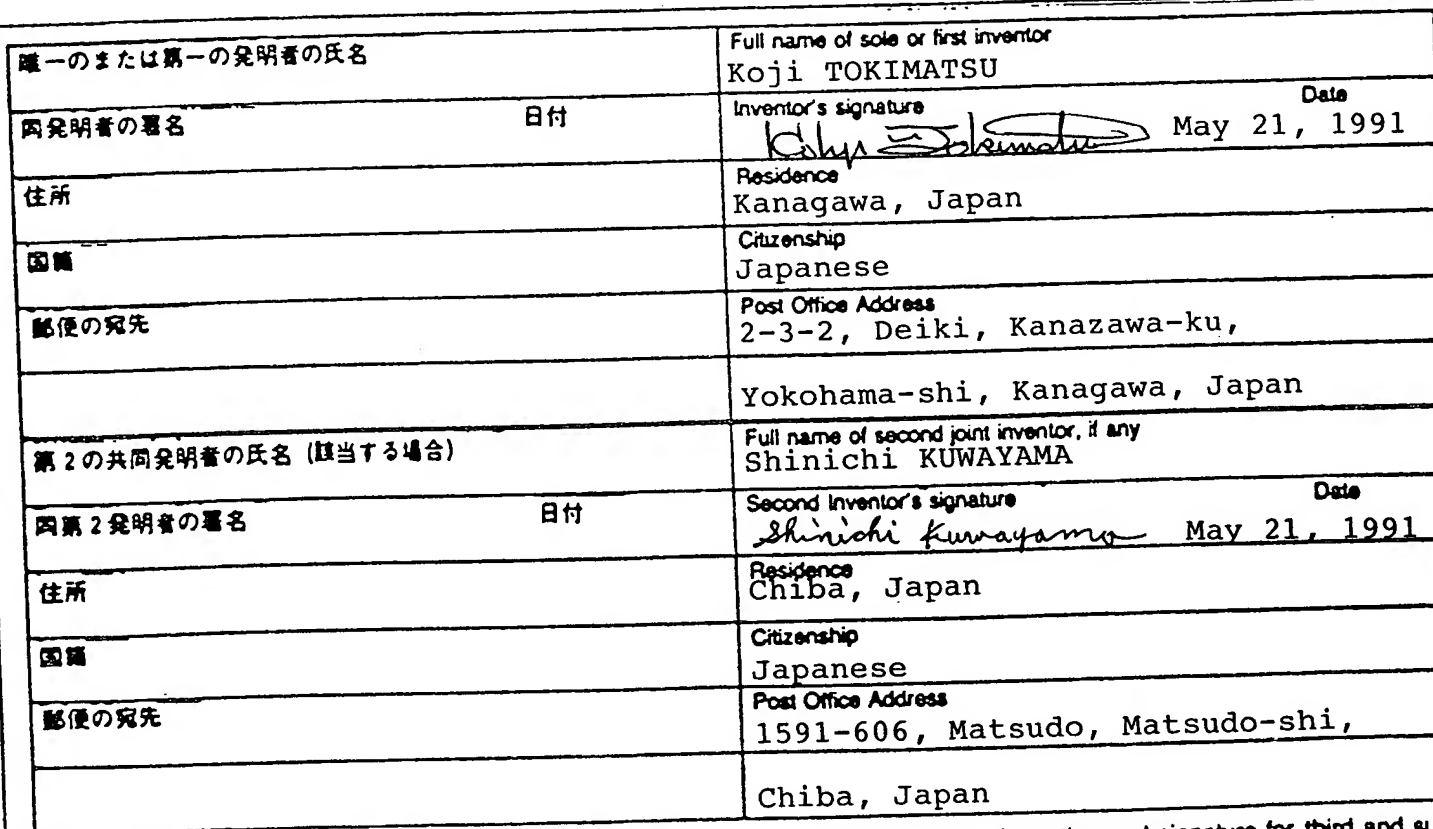 唯一のまたは第一の発明者の氏名
Full name of sole or first inventor
Koji TOKIMATSU
同発明者の署名 日付
Inventor's signature Date
Koji Tokimatsu May 21, 1991
住所
Residence
Kanagawa, Japan
国籍
Citizenship
Japanese
郵便の宛先
Post Office Address
2-3-2, Deiki, Kanazawa-ku,
Yokohama-shi, Kanagawa, Japan
第2の共同発明者の氏名 (該当する場合)
Full name of second joint inventor, if any
Shinichi KUWAYAMA
同第2発明者の署名 日付
Second Inventor's signature Date
Shinichi Kuwayama May 21, 1991
住所
Residence
Chiba, Japan
国籍
Citizenship
Japanese
郵便の宛先
Post Office Address
1591-606, Matsudo, Matsudo-shi,
Chiba, Japan
signature for third and